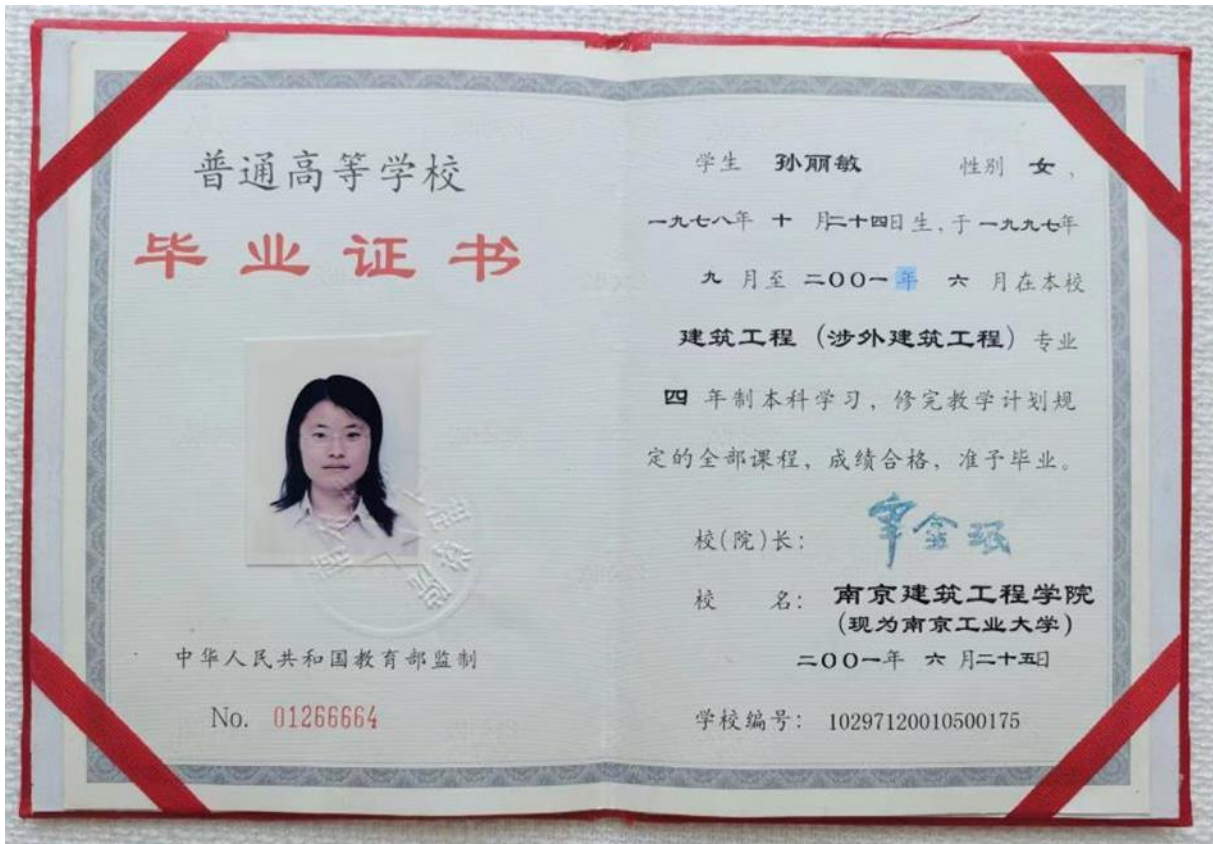 普通高等学校
毕业证书
中华人民共和国教育部监制
No. 01266664
学生 孙丽敏 性别 女，
一九七八年 十 月二十四日生，于一九九七年
九 月至 二〇〇一年 六 月在本校
建筑工程（涉外建筑工程）专业
四 年制本科学习，修完教学计划规
定的全部课程，成绩合格，准予毕业。
校(院)长：
校 名： 南京建筑工程学院
(现为南京工业大学)
二〇〇一年 六 月二十五日
学校编号： 10297120010500175